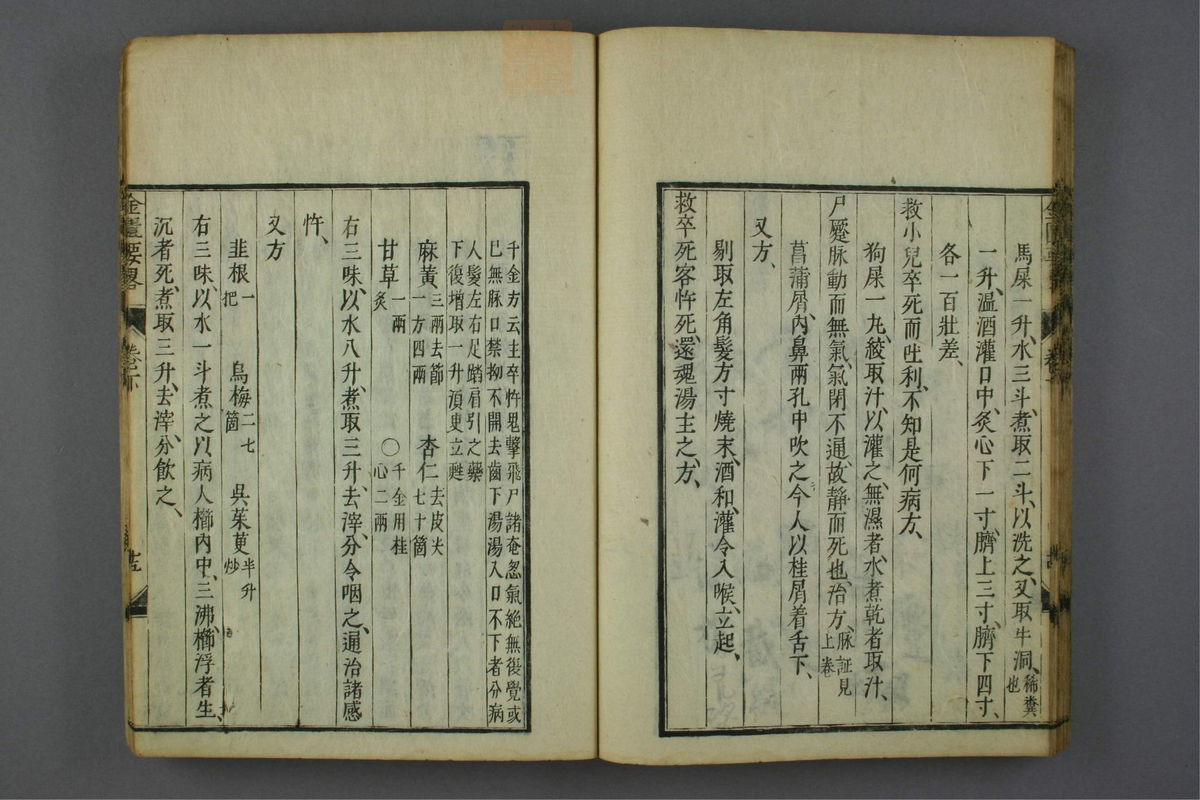 馬屎一升、水三斗、煮取二斗、以洗之、又取牛洞、稀糞也
一升、溫酒灌口中、灸心下一寸、臍上三寸、臍下四寸、
各一百壯差、
救小兒卒死而吐利、不知是何病方、
狗屎一丸、絞取汁、以灌之、無濕者、水煮乾者取汁、
尸蹷脉動而無氣、氣閉不通、故靜而死也、治方、脉証見上卷
菖蒲屑、內鼻兩孔中吹之、今人以桂屑着舌下、
又方、
剔取左角髮方寸燒末、酒和、灌令入喉、立起、
救卒死客忤死、還魂湯主之、方、
千金方云主卒忤鬼擊飛尸諸奄忽氣絶無復覺或
已無脉口禁拗不開去齒下湯湯入口不下者分病
人髮左右足踏肩引之藥
下復增取一升須臾立甦
麻黃三兩去節一方四兩 杏仁去皮尖七十箇
甘草一兩炙 〇千金用桂心二兩
右三味、以水八升、煮取三升、去滓、分令咽之、通治諸感
忤、
又方
韭根一把 烏梅二七箇 吳茱萸半升炒
右三味、以水一斗煮之、以病人櫛內中、三沸、櫛浮者生、
沉者死、煮取三升、去滓、分飲之、
金匱要畧 卷下